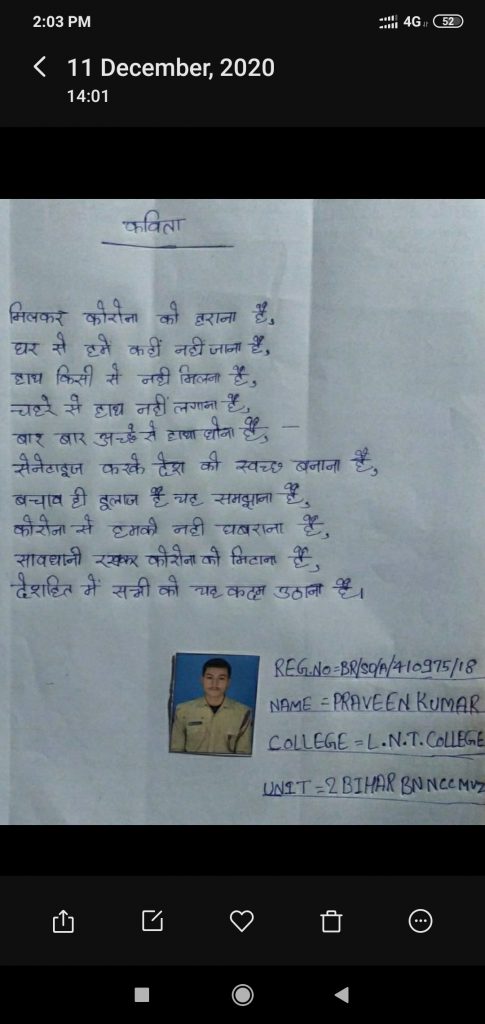 2:03 PM
4G 52
11 December, 2020
14:01
कविता
मिलकर कोरोना को हराना है,
घर से हमे कहीं नहीं जाना है,
हाथ किसी से नही मिलना है,
चहरे से हाथ नहीं लगाना है,
बार बार अच्छे से हाथ धोना है, —
सेनेटाइज करके देश को स्वच्छ बनाना है,
बचाव ही इलाज है यह समझाना है,
कोरोना से हमको नही घबराना है,
सावधानी रखकर कोरोना को मिटाना है,
देशहित में सभी को यह कदम उठाना है।
REG.NO=BR/SD/A/410975/18
NAME = PRAVEEN KUMAR
COLLEGE = L.N.T. COLLEGE
UNIT = 2 BIHAR BN NCC MUZ